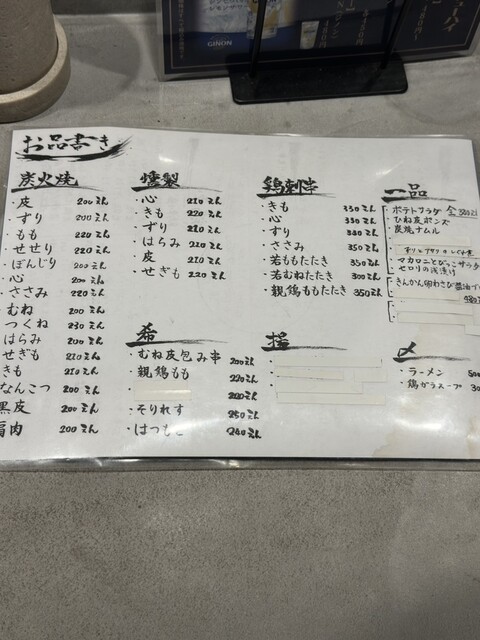 GINON
お品書き
炭火焼
・皮 200えん
・ずり 200えん
・もも 220えん
・せせり 220えん
・ぼんじり 200えん
・心 200えん
・ささみ 220えん
・むね 200えん
・つくね 230えん
はらみ 200えん
せぎも 210えん
きも 210えん
なんこつ 200えん
黒皮 200えん
肩肉 200えん
燻製
・心 210えん
・きも 220えん
・ずり 210えん
・はらみ 220えん
・皮 210えん
・せぎも 220えん
希
・むね皮包み串 200えん
・親鶏もも 220えん
200えん
・そりれす 250えん
・はつもと 240えん
鶏刺串
・きも 330えん
・心 330えん
・ずり 330えん
・ささみ 350えん
・若ももたたき 350えん
・若むねたたき 300えん
・親鶏ももたたき 350えん
揚
一品
・ポテトサラダ
・ひね皮ポンズ
・炭焼ナムル
・マカロニとびっこサラダ
・セロリの浅漬け
・きんかん卵わさび醤油
〆
・ラーメン
・鶏ガラスープ